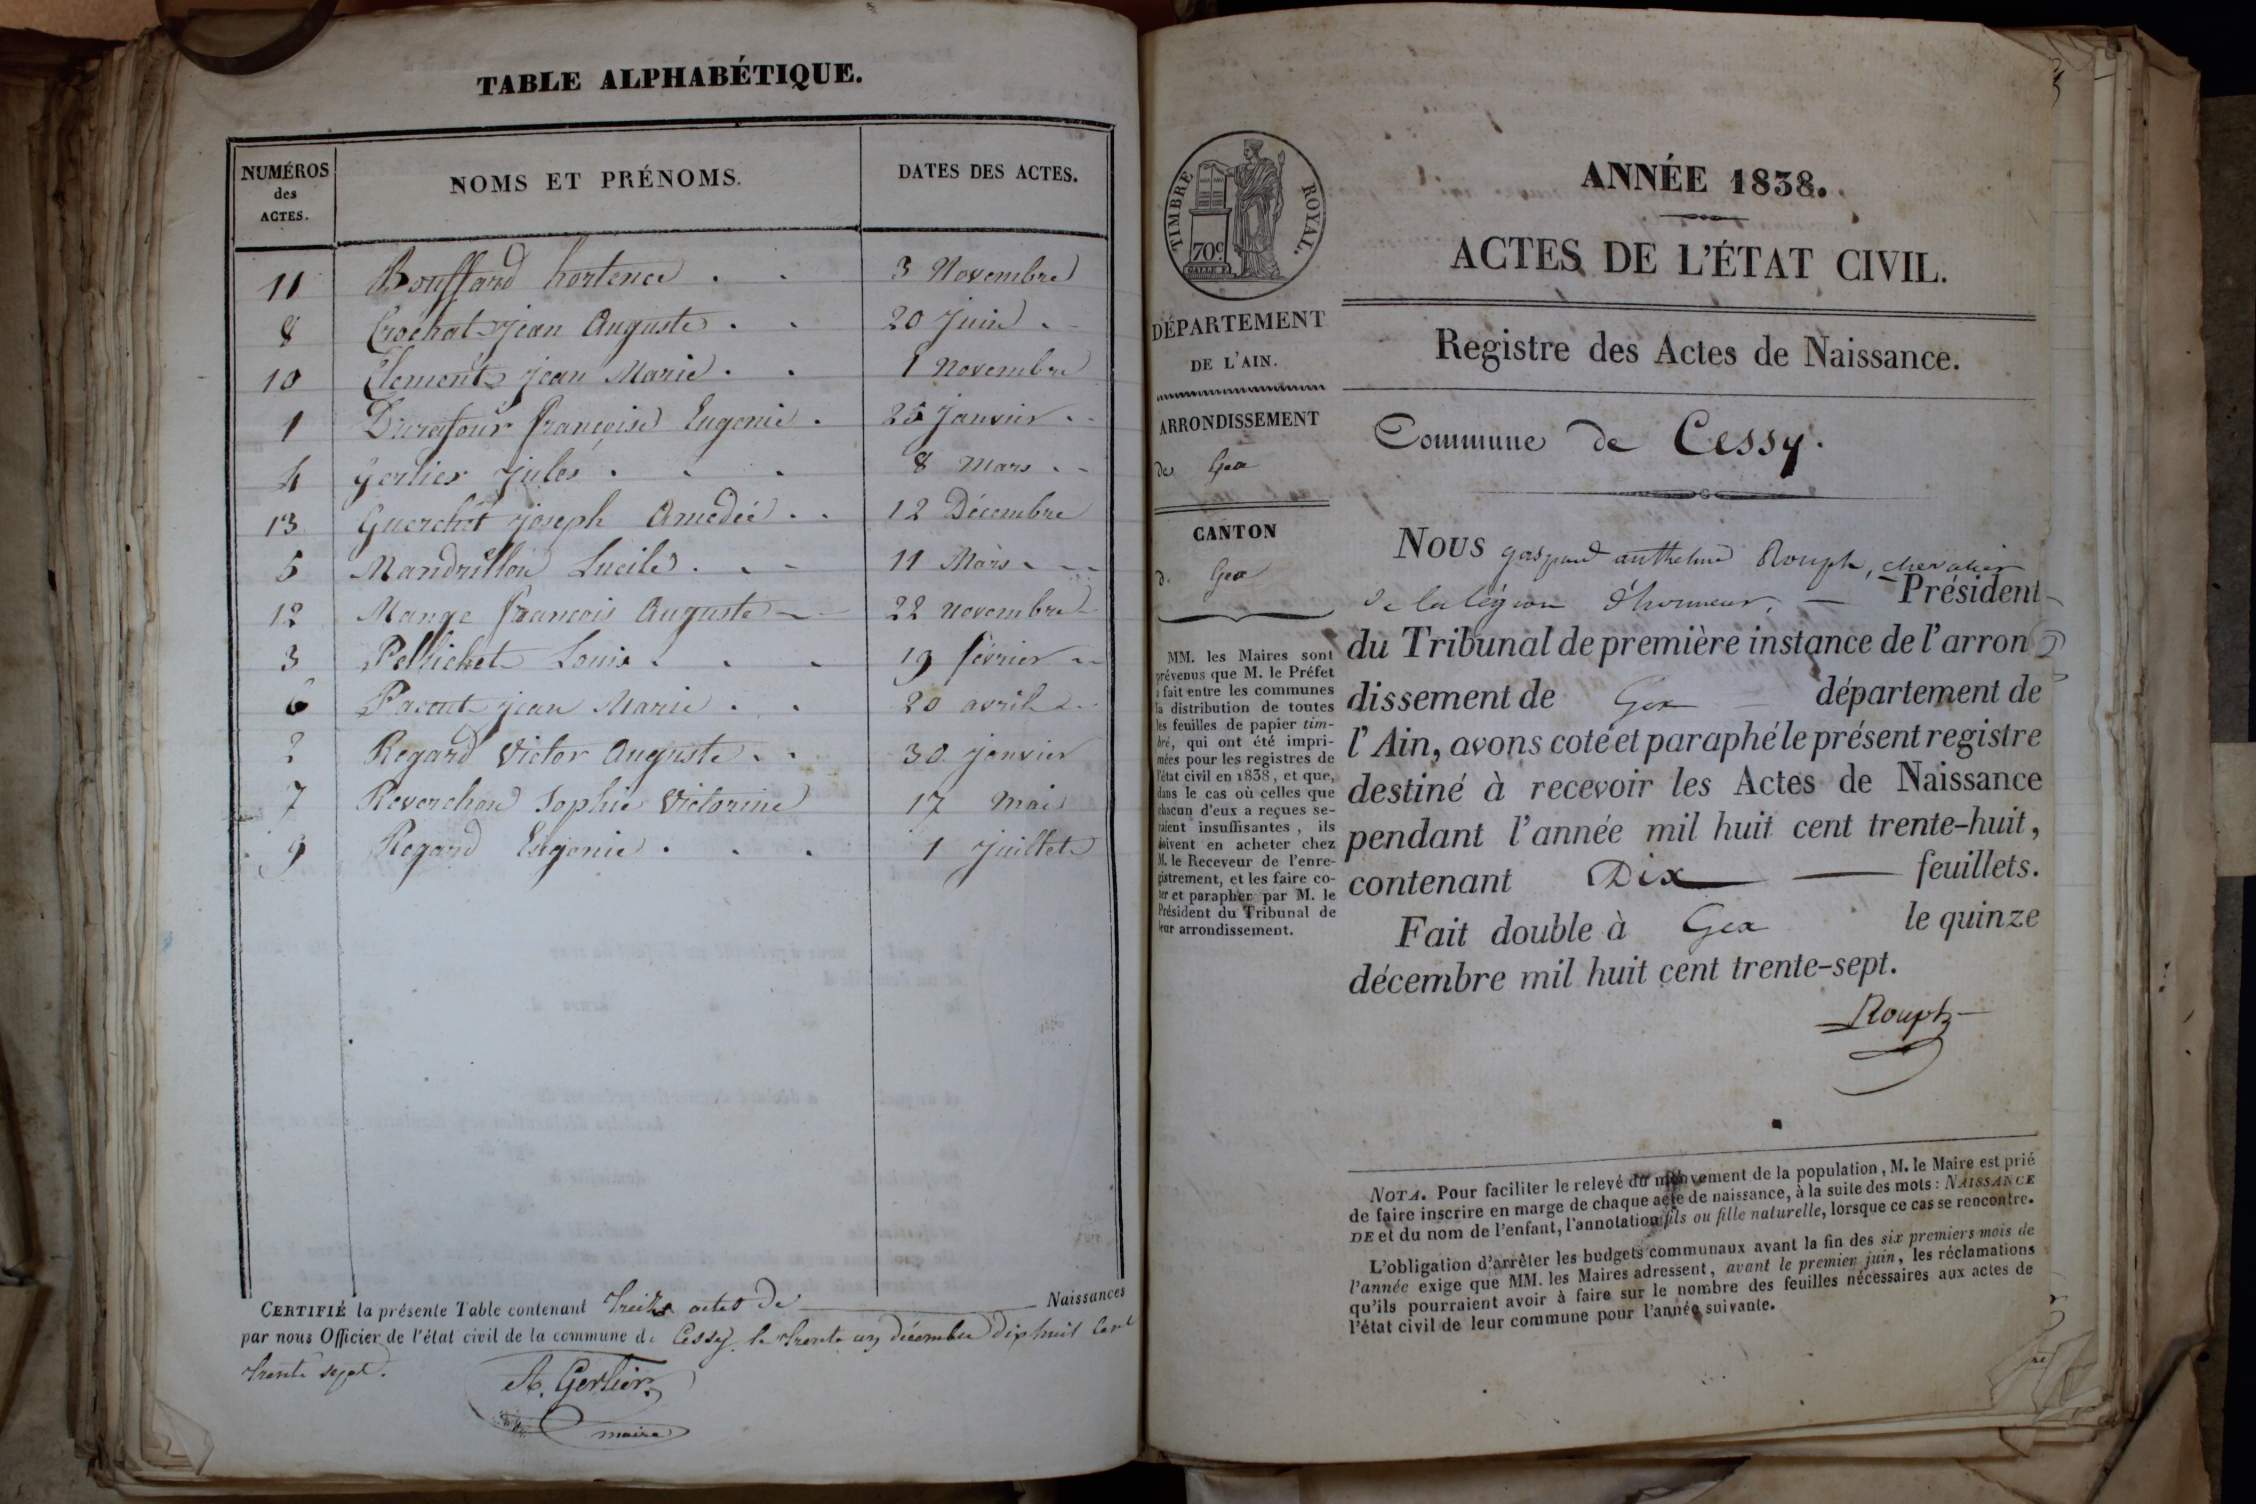 TABLE ALPHABÉTIQUE.
NUMÉROS
des
ACTES.
NOMS ET PRÉNOMS.
DATES DES ACTES.
11 Bouffard hortence . . 3 Novembre
8 Crochat jean Auguste . . 20 juin .
10 Clement jean Marie . . 1 Novembre
1 Duraffour françoise Eugenie . 25 janvier . .
4 Gerlier jules . . . 8 Mars . .
13 Guerchet joseph Amedée . . 12 Décembre
5 Mandrillon Lucile . . . 11 Mars . .
12 Mange françois Auguste 22 novembre
3 Pellichet Louis . . . 19 février
6 jean Marie . . 20 avril
2 Regard Victor Auguste . . 30 janvier
7 Reverchon Sophie Victorine 17 mai
9 Regard Eugenie . . . 1 juillet
CERTIFIÉ la présente Table contenant treize actes de Naissances
par nous Officier de l'état civil de la commune de Cessy le trente un décembre dix huit cent
trente sept.
A. Gerlier
maire
TIMBRE ROYAL.
70c
ANNÉE 1838.
ACTES DE L'ÉTAT CIVIL.
Registre des Actes de Naissance.
Commune de Cessy.
DÉPARTEMENT
DE L'AIN.
ARRONDISSEMENT
de Gex
CANTON
de Gex
MM. les Maires sont
prévenus que M. le Préfet
a fait entre les communes
la distribution de toutes
les feuilles de papier tim-
bré, qui ont été impri-
mées pour les registres de
l'état civil en 1838, et que,
dans le cas où celles que
chacun d'eux a reçues se-
raient insuffisantes, ils
doivent en acheter chez
M. le Receveur de l'enre-
gistrement, et les faire co-
ter et parapher par M. le
Président du Tribunal de
leur arrondissement.
NOUS gaspard anthelme Rouph, chevalier
de la légion d'honneur, — Président
du Tribunal de première instance de l'arron
dissement de Gex département de
l'Ain, avons coté et paraphé le présent registre
destiné à recevoir les Actes de Naissance
pendant l'année mil huit cent trente-huit,
contenant Dix feuillets.
Fait double à Gex le quinze
décembre mil huit cent trente-sept.
Rouph
NOTA. Pour faciliter le relevé du mouvement de la population, M. le Maire est prié
de faire inscrire en marge de chaque acte de naissance, à la suite des mots : NAISSANCE
DE et du nom de l'enfant, l'annotation fils ou fille naturelle, lorsque ce cas se rencontre.
L'obligation d'arrêter les budgets communaux avant la fin des six premiers mois de
l'année exige que MM. les Maires adressent, avant le premier juin, les réclamations
qu'ils pourraient avoir à faire sur le nombre des feuilles nécessaires aux actes de
l'état civil de leur commune pour l'année suivante.